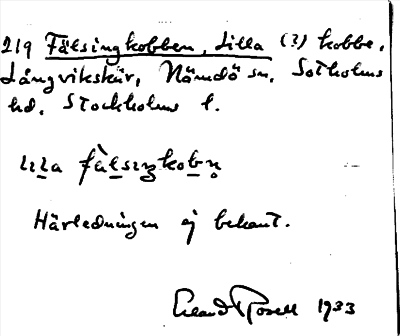 219 Fälsingkobben, Lilla (3) kobbe,
Långviksskär, Nämdö sn, Sotholms
hd. Stockholms l.
lıla fàlsıŋkobn̥
Härledningen ej bekant.
Erland Rosell 1933